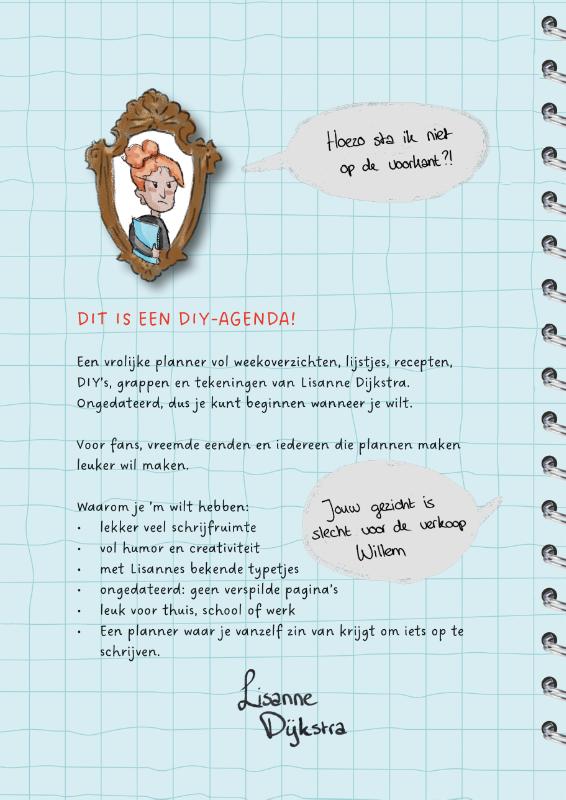 Hoezo sta ik niet
op de voorkant?!
DIT IS EEN DIY-AGENDA!
Een vrolijke planner vol weekoverzichten, lijstjes, recepten,
DIY's, grappen en tekeningen van Lisanne Dijkstra.
Ongedateerd, dus je kunt beginnen wanneer je wilt.
Voor fans, vreemde eenden en iedereen die plannen maken
leuker wil maken.
Jouw gezicht is
slecht voor de verkoop
Willem
Waarom je 'm wilt hebben:
• lekker veel schrijfruimte
• vol humor en creativiteit
• met Lisannes bekende typetjes
• ongedateerd: geen verspilde pagina's
• leuk voor thuis, school of werk
• Een planner waar je vanzelf zin van krijgt om iets op te
schrijven.
Lisanne
Dijkstra